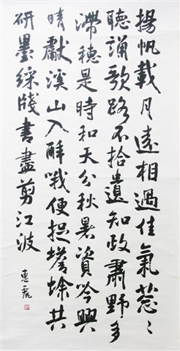 揚帆載月遠相過佳氣葱〻
聽誦歌路不拾遺知政肅野多
滯穗是時和天分秋暑資吟興
晴獻溪山入醉哦便捉蟾蜍共
研墨綵牋書盡剪江波
惠